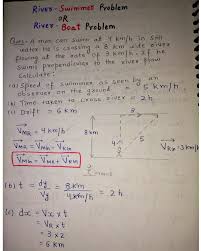 River-Swimmer Problem
OR
River Boat Problem
Ques- A man can swim at 4 km/h in still
water. He is crossing a 8 km wide river
flowing at the rate of 3 km/h. If he
swims perpendicular to the river flow
calculate:
(a) Speed of swimmer as seen by an
observer on the ground 5 km/h
(b) Time taken to cross river = 2h
(c) Drift = 6 km
VMR = 4 km/h
VMR = VMG - VRG
VMG = VMR + VRG
8 km
4
5
3
VR = 3 km/h
(b) t = dy/Vy = 8 km/4 km/h = 2h
(c) dx = Vx × t
= VR × t
= 3 × 2
= 6 km